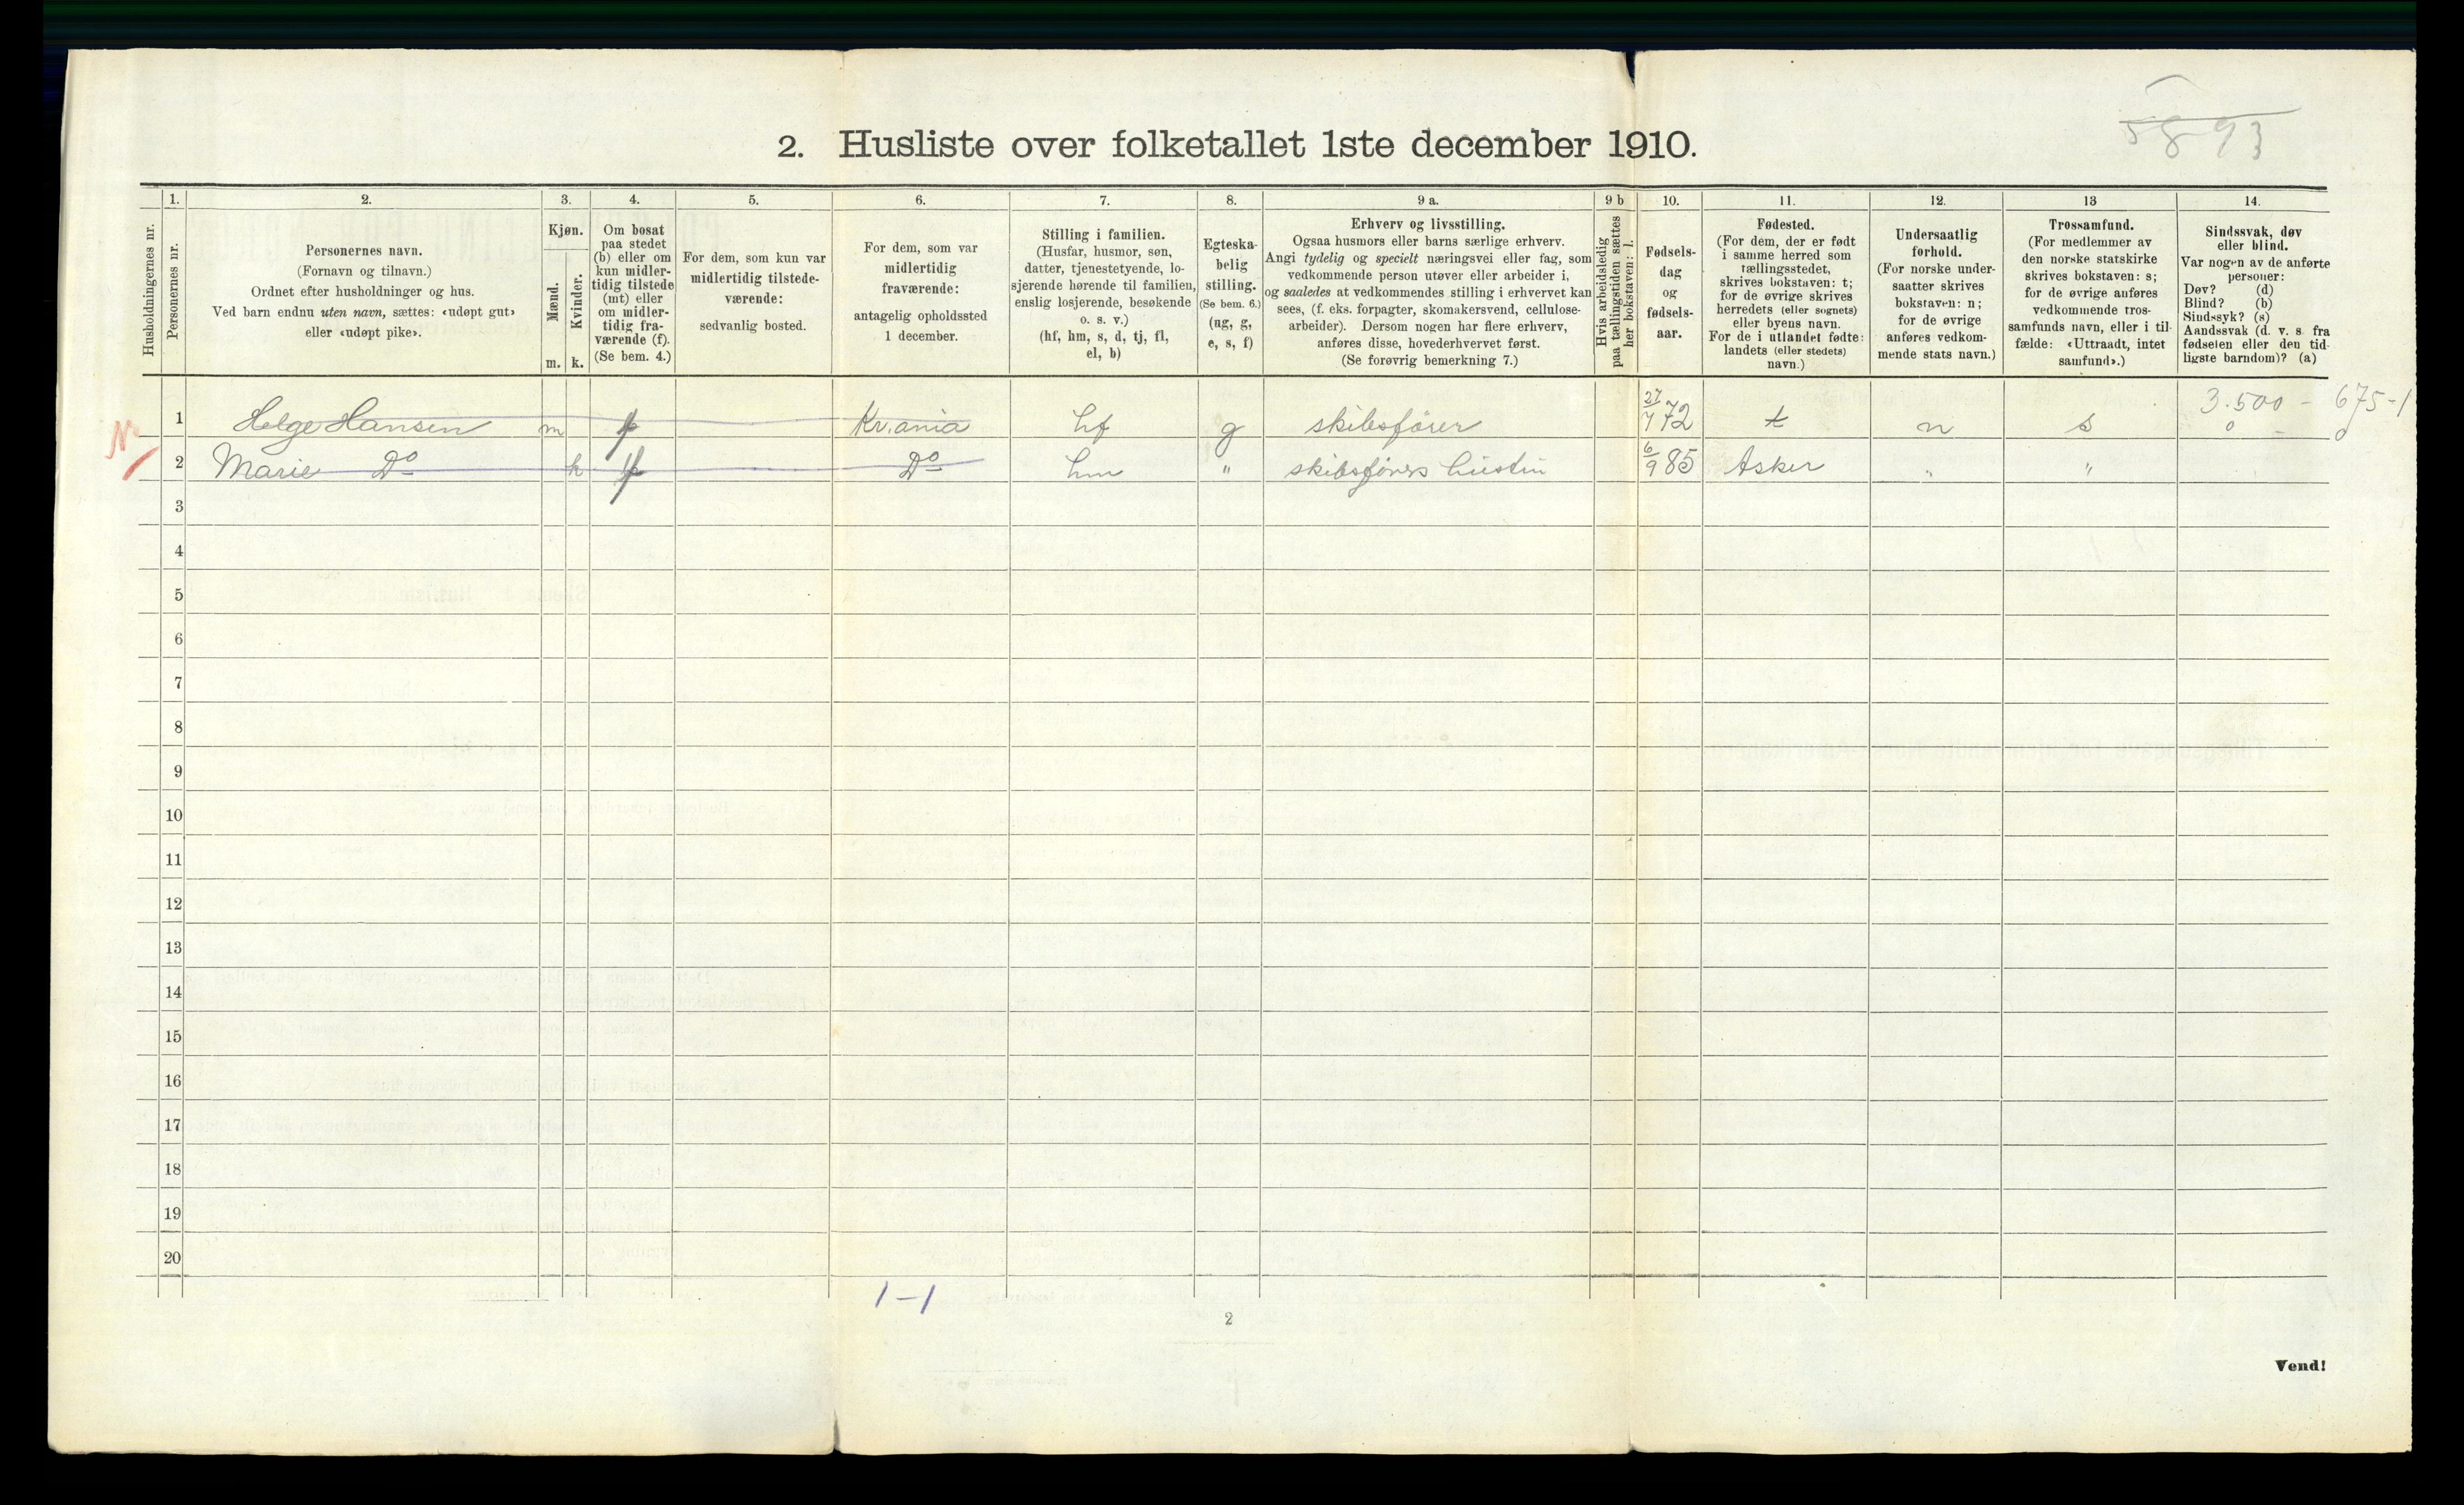 5893
2. Husliste over folketallet 1ste december 1910.
Husholdningernes nr.
1.
Personernes nr.
2.
Personernes navn.
(Fornavn og tilnavn.)
Ordnet efter husholdninger og hus.
Ved barn endnu uten navn, sættes: «udøpt gut»
eller «udøpt pike».
3.
Kjøn.
Mænd.
Kvinder.
m. k.
4.
Om bosat
paa stedet
(b) eller om
kun midler-
tidig tilstede
(mt) eller
om midler-
tidig fra-
værende (f).
(Se bem. 4.)
5.
For dem, som kun var
midlertidig tilstede-
værende:
sedvanlig bosted.
6.
For dem, som var
midlertidig
fraværende:
antagelig opholdssted
1 december.
7.
Stilling i familien.
(Husfar, husmor, søn,
datter, tjenestetyende, lo-
sjerende hørende til familien,
enslig losjerende, besøkende
o. s. v.)
(hf, hm, s, d, tj, fl,
el, b)
8.
Egteska-
belig
stilling.
(Se bem. 6.)
(ug, g,
e, s, f)
9 a.
Erhverv og livsstilling.
Ogsaa husmors eller barns særlige erhverv.
Angi tydelig og specielt næringsvei eller fag, som
vedkommende person utøver eller arbeider i,
og saaledes at vedkommendes stilling i erhvervet kan
sees, (f. eks. forpagter, skomakersvend, cellulose-
arbeider). Dersom nogen har flere erhverv,
anføres disse, hovederhvervet først.
(Se forøvrig bemerkning 7.)
9 b
Hvis arbeidsledig
paa tællingstiden sættes
her bokstaven: l.
10.
Fødsels-
dag
og
fødsels-
aar.
11.
Fødested.
(For dem, der er født
i samme herred som
tællingsstedet,
skrives bokstaven: t;
for de øvrige skrives
herredets (eller sognets)
eller byens navn.
For de i utlandet fødte:
landets (eller stedets)
navn.)
12.
Undersaatlig
forhold.
(For norske under-
saatter skrives
bokstaven: n;
for de øvrige
anføres vedkom-
mende stats navn.)
13
Trossamfund.
(For medlemmer av
den norske statskirke
skrives bokstaven: s;
for de øvrige anføres
vedkommende tros-
samfunds navn, eller i til-
fælde: «Uttraadt, intet
samfund».)
14.
Sindssvak, døv
eller blind.
Var nogen av de anførte
personer:
Døv? (d)
Blind? (b)
Sindssyk? (s)
Aandssvak (d. v. s. fra
fødselen eller den tid-
ligste barndom)? (a)
1 Helge Hansen m f Kr.ania hf g skibsfører 27/7 72 t n s 3.500 - 675-1
0 - 0
2 Marie Do k f Do hm " skibsførers hustru 6/9 85 Asker " "
3
4
5
6
7
8
9
10
11
12
13
14
15
16
17
18
19
20
1-1
2
Vend!